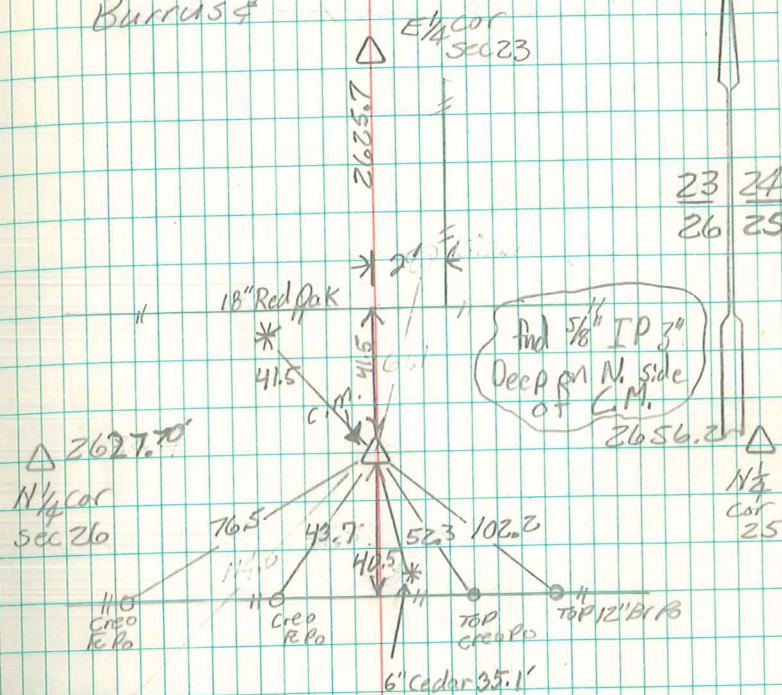 Burruss
E 1/4 cor
sec 23
2625.7
23 | 24
26 | 25
2'
18" Red Oak
41.5
41.5
C.M.
fnd 5/8" IP 3"
Deep on N. side
of C.M.
2627.70'
N 1/4 cor
sec 26
2656.2
N 1/4
cor
25
76.5
43.7
40.5
52.3
102.2
Creo
Fe Po
Creo
Fe Po
TOP
Creo Po
TOP 12" Br Po
6" Cedar 35.1'